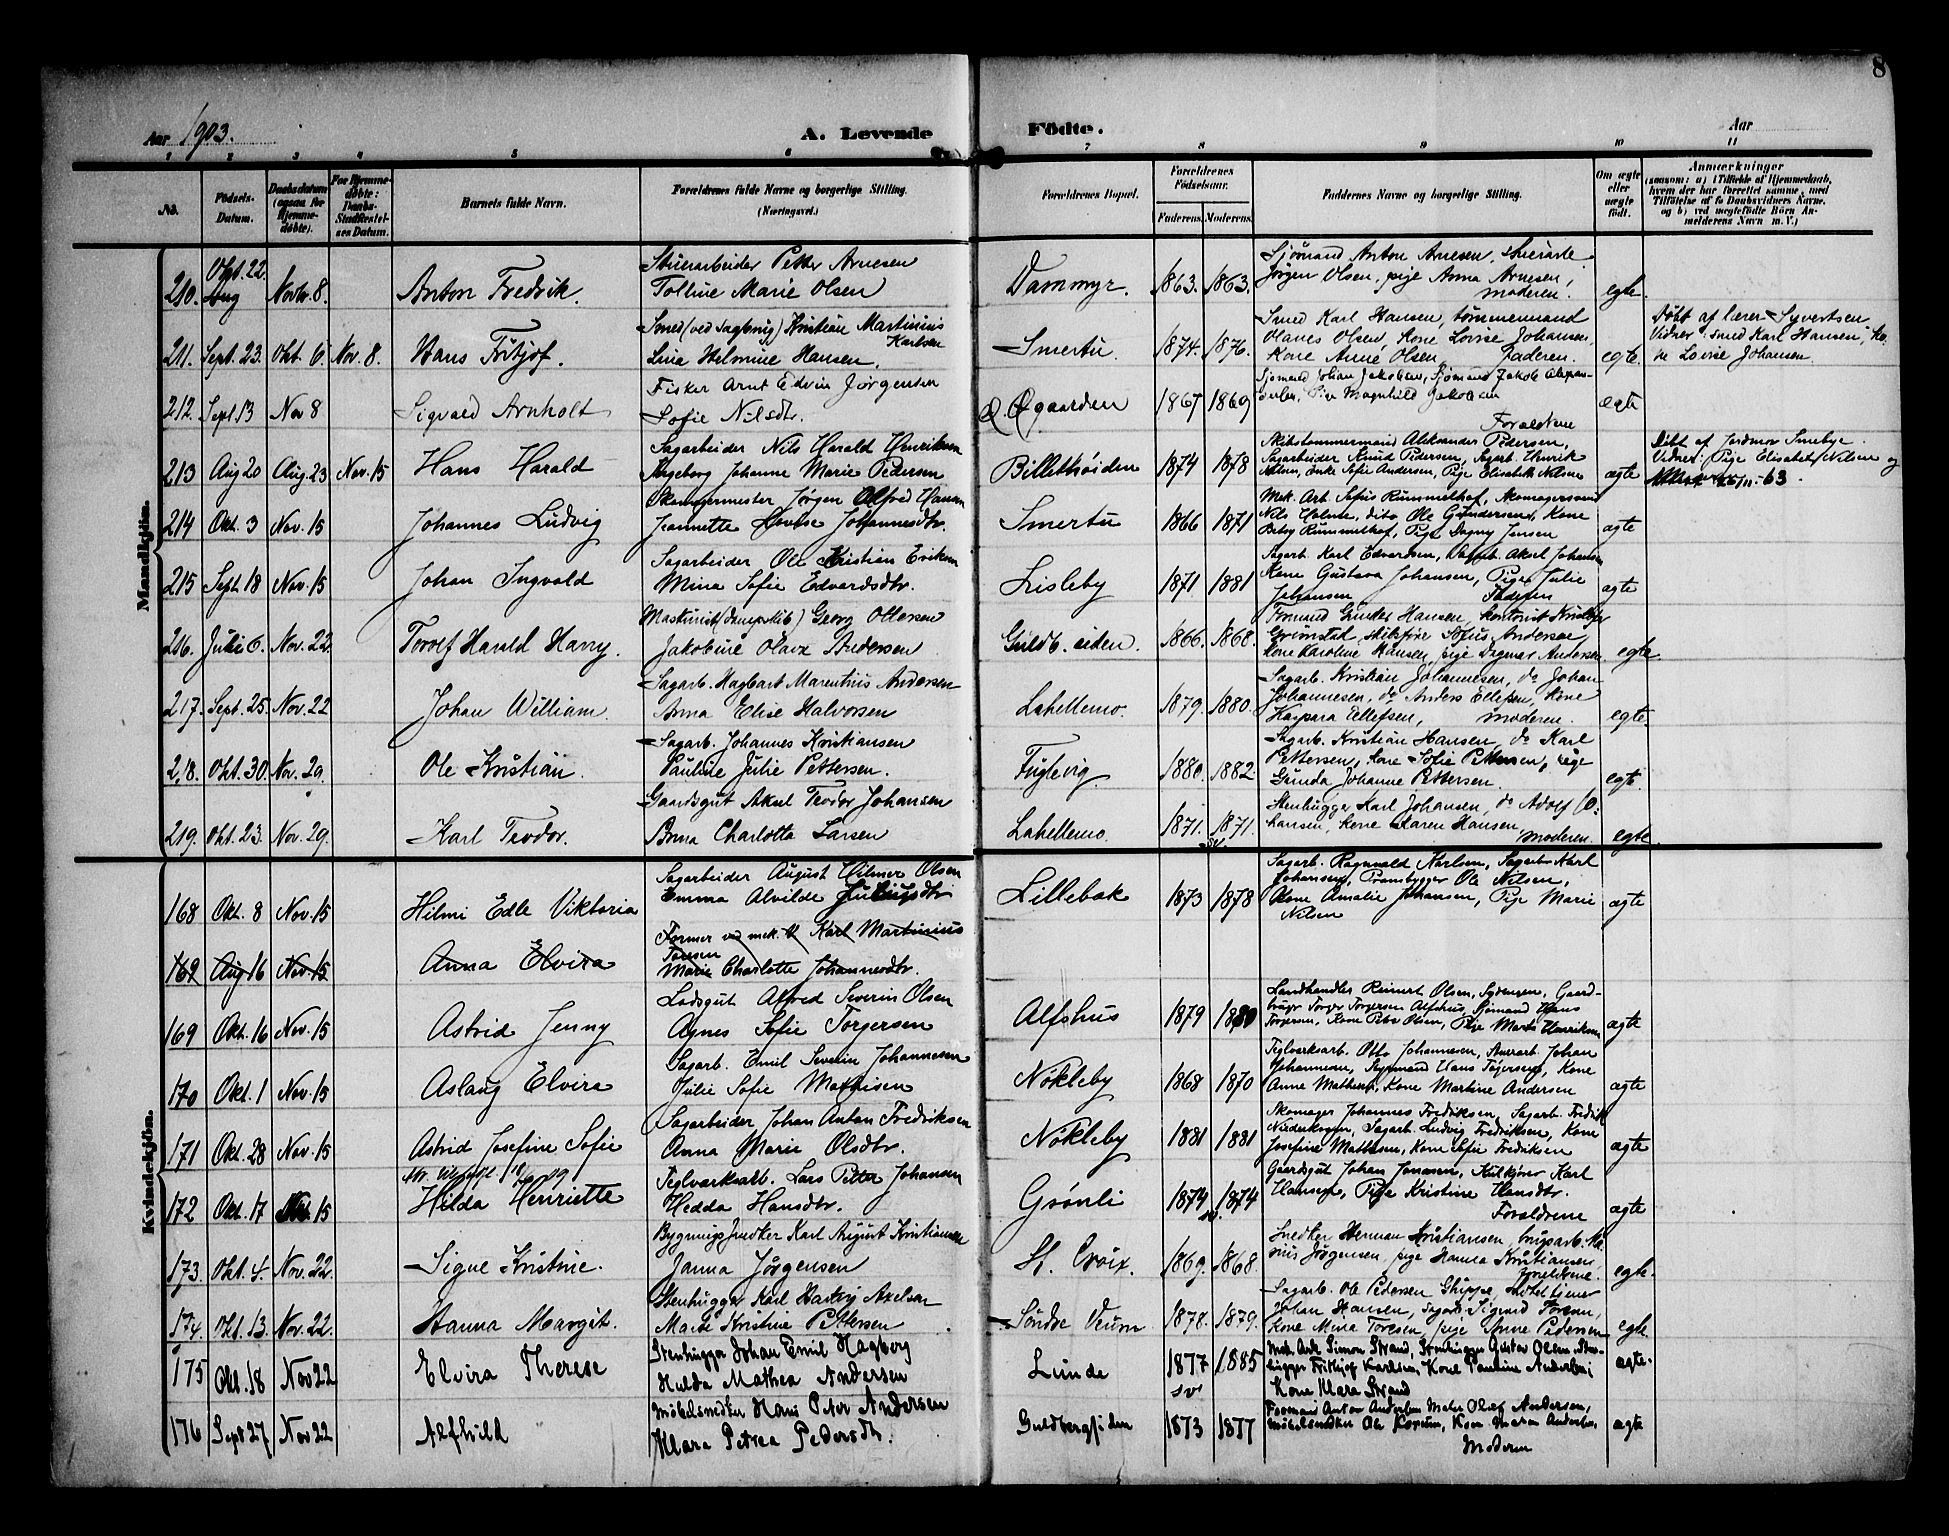 8
Aar 1903.
A. Levende
Födte.
Aar
1 2 3 4 5 6 7 8 9 10 11
No.
Födsels-Datum.
Daabsdatum (ogsaa for Hjemme-døbte).
For Hjemme-døbte: Daabs-Stadfæstel-ses Datum.
Barnets fulde Navn.
Forældrenes fulde Navne og borgerlige Stilling. (Næringsvei.)
Forældrenes Bopæl.
Forældrenes Födselsaar.
Faderens. Moderens.
Faddernes Navne og borgerlige Stilling.
Om ægte eller uægte født.
Anmærkninger
(saasom: a) i Tilfælde af Hjemmedaab, hvem der har forrettet samme, med Tilføielse af to Daabsvidners Navne, og b) ved uægtefødte Börn An-melderens Navn m. V.)
Mandkjön.
Okt. 22. Stuerarbeider Petter Arnesen Sjömand Anton Arnesen,
210. Aug Novbr. 8. Anton Fredrik. Tolline Marie Olsen Dammyr. 1863. 1863. Jörgen Olsen, pige Anna Arnesen, moderen. egte.
Smed Kristian Martinius Karlsen Smed Karl Hansen, tömmermand Döbt af lærer Syvertsen
211. Sept. 23. Okt 6. Nov. 8. Hans Fritjof. Lina Helmine Hansen. Smertu. 1874. 1876. Olanes Olsen, Kone Lovise Johansen, Kone Anne Olsen, Faderen. egte. Vidner: smed Karl Hansen, Ko-ne Lovise Johansen.
Fisker Arnt Edvin Jørgensen Sjømand Johan Jakobsen, Sjømand Jakob
212. Sept 13 Nov 8 Sigvald Arnholt Sofie Nilsdtr. Øgaarden 1867 1869 Pige Magnhild Jakobsen Foraldrene ægte
Sagarbeider Nils Harald Henriksen Skibstømmermand Aleksander Pedersen, Döbt af Jordmor Smebye.
213 Aug 20 Aug. 23 Nov. 15 Hans Harald Ingeborg Johanne Marie Pedersen Billethöiden 1874 1878 Sagarbeider Knud Pedersen, Sagarb. Henrik Nilsen, Enke Sofie Andersen, Pige Elisabeth Nilsen ægte Vidner: Pige Elisabet Nilsen og
Skomagermester Jørgen Alfred Hansen Mek. Arb. Sofus Rummelhof,
214 Okt. 3 Nov. 15 Johannes Ludvig Jeanette Lovise Johannesdtr. Smertu 1866 1871 dito Ole Gundersen, Kone Betsy Rummelhof, Pige Dagny Jensen ægte
Sagarbeider Ole Kristian Eriksen Sagarb. Karl Edvardsen,
215 Sept. 18 Nov. 15 Johan Ingvald Mina Sofie Edvardsdtr. Lisleby 1871 1881 Kone Gustava Johansen, Pige Julie Johansen Faderen ægte
Maskinist Georg Ottersen Formand Gunder Hansen, kontorist
216. Juli 6. Nov. 22 Torolf Harald Harry. Jakobine Olava Andersen Guldb. siden. 1866. 1868. Grimstad, Sofus Andersen, Kone Karoline Hansen, pige Dagmar Andersen egte.
Sagarb. Hagbart Marentius Andersen Sagarb. Kristian Johannesen, do Johan
217. Sept. 25. Nov. 22 Johan William. Anna Elise Halvorsen Lahellemo. 1879. 1880. Johannesen, do Anders Ellefsen, Kone Kaspara Ellefsen, moderen. egte.
Sagarb. Johannes Kristiansen Sagarb. Kristian Hansen, do Karl
218. Okt. 30. Nov. 29. Ole Kristian. Pauline Julie Pettersen. Fuglevig. 1880. 1882. Pettersen, Kone Sofie Pettersen, pige Gunda Johanne Pettersen egte.
Gaardsgut Aksel Teodor Johansen Stenhugger Karl Johansen, do Adolf Jo-
219. Okt. 23. Nov. 29. Karl Teodor. Anna Charlotta Larsen Lahellemo. 1871. 1871. sv hansen, Kone Karen Hansen, moderen. egte.
Kvindekjön.
Sagarbeider August Hilmer Olsen Sagarb. Ragnvald Karlsen, Sagarb. Karl
168 Okt. 8 Nov. 15 Hilmi Edle Viktoria Emma Alvilde Juliusdtr. Lillebak 1873 1878 Johansen, Prambygger Ole Nilsen, Kone Amalie Johansen, Pige Marie Nilsen ægte
Former ved mek. V. Karl Martinius Toresen
169 Aug 16 Nov. 15 Anna Elvira Marie Charlotte Johannesdtr.
Losgut Alfred Severin Olsen Landhandler Reinert Olsen,
169 Okt. 16 Nov. 15 Astrid Jenny Agnes Sofie Torgersen Alfshus 1879 1880 Torger Torgersen Alfshus, Sjømand Hans Torgersen, Kone Petra Olsen, Pige Marie Henriksen ægte
Sagarb. Emil Severin Johannesen Teglværksarb. Otto Johannesen, Johan
170 Okt. 1 Nov. 15 Aslaug Elvira Julie Sofie Mathisen Nökleby 1868 1870 Johannesen, Sjømand Hans Torgersen, Kone Anne Mathisen, Kone Martine Andersen ægte
Sagarbeider Johan Anton Fredriksen Skomager Johannes Fredriksen, Sagarb. Fredrik
171 Okt. 28 Nov. 15 Astrid Josefine Sofie Anna Marie Olsdtr. Nökleby 1881 1881 Sagarb. Ludvig Fredriksen, Kone Josefine Mathisen, Kone Sofie Fredriksen ægte
Teglværksarb. Lars Petter Johansen Gaardsgut Johan Jonasen, Kulkjører Karl
172 Okt. 17 Nov. 15 Hilda Henriette Hedda Hansdtr. Grönli 1874 sv. 1874 Hansen, Pige Kristine Hansdtr. Foraldrene ægte
Bygningssnedker Karl August Kristiansen Snedker Herman Kristiansen,
173. Okt. 4. Nov. 22. Signe Kristine. Janna Jörgensen St. Croix. 1869. 1868. Jörgensen, pige Hanna Kristiansen, foreldrene. egte.
Stenhugger Karl Harry Axelsen Sagarb. Ole Pedersen
174. Okt. 13. Nov. 22. Hanna Margit. Marie Kristine Pettersen Söndre Veum. 1878. 1879. Johan Hansen, Sagarb. Sigvard Toresen, Kone Mina Toresen, pige Anne Pedersen egte
175 Okt. 18 Nov 22 Elvira Therese Stenhugger Johan Emil Hagberg Lunde 1877 sv 1885 Mek. Arb. Simon Strand, Stenhugger Gustav Olsen, Sten- ægte.
Hulda Mathea Andersen hugger Frithjof Karlsen, Kone Pauline Andersen, Kone Klara Strand
Möbelsnedker Hans Peter Andersen Formand Anton Andersen Maler Olaf Andersen,
176 Sept 27 Nov 22 Alfhild Klara Petrea Pedersdtr. Guldbergsiden 1873 1877 Möbelsnedker Ole Kone Maren Andersen, Moderen ægte